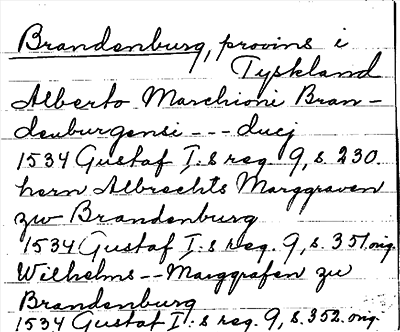 Brandenburg, provins i
Tyskland
Alberto Marchioni Bran-
denburgensi - - - ducj
1534 Gustaf I:s reg. 9, s. 230.
hern Albrechts Marggraven
zw Brandenburg
1534 Gustaf I:s reg. 9, s. 351. orig.
Wilhelms - - Marggrafen zu
Brandenburg
1534 Gustaf I:s reg. 9, s. 352. orig.